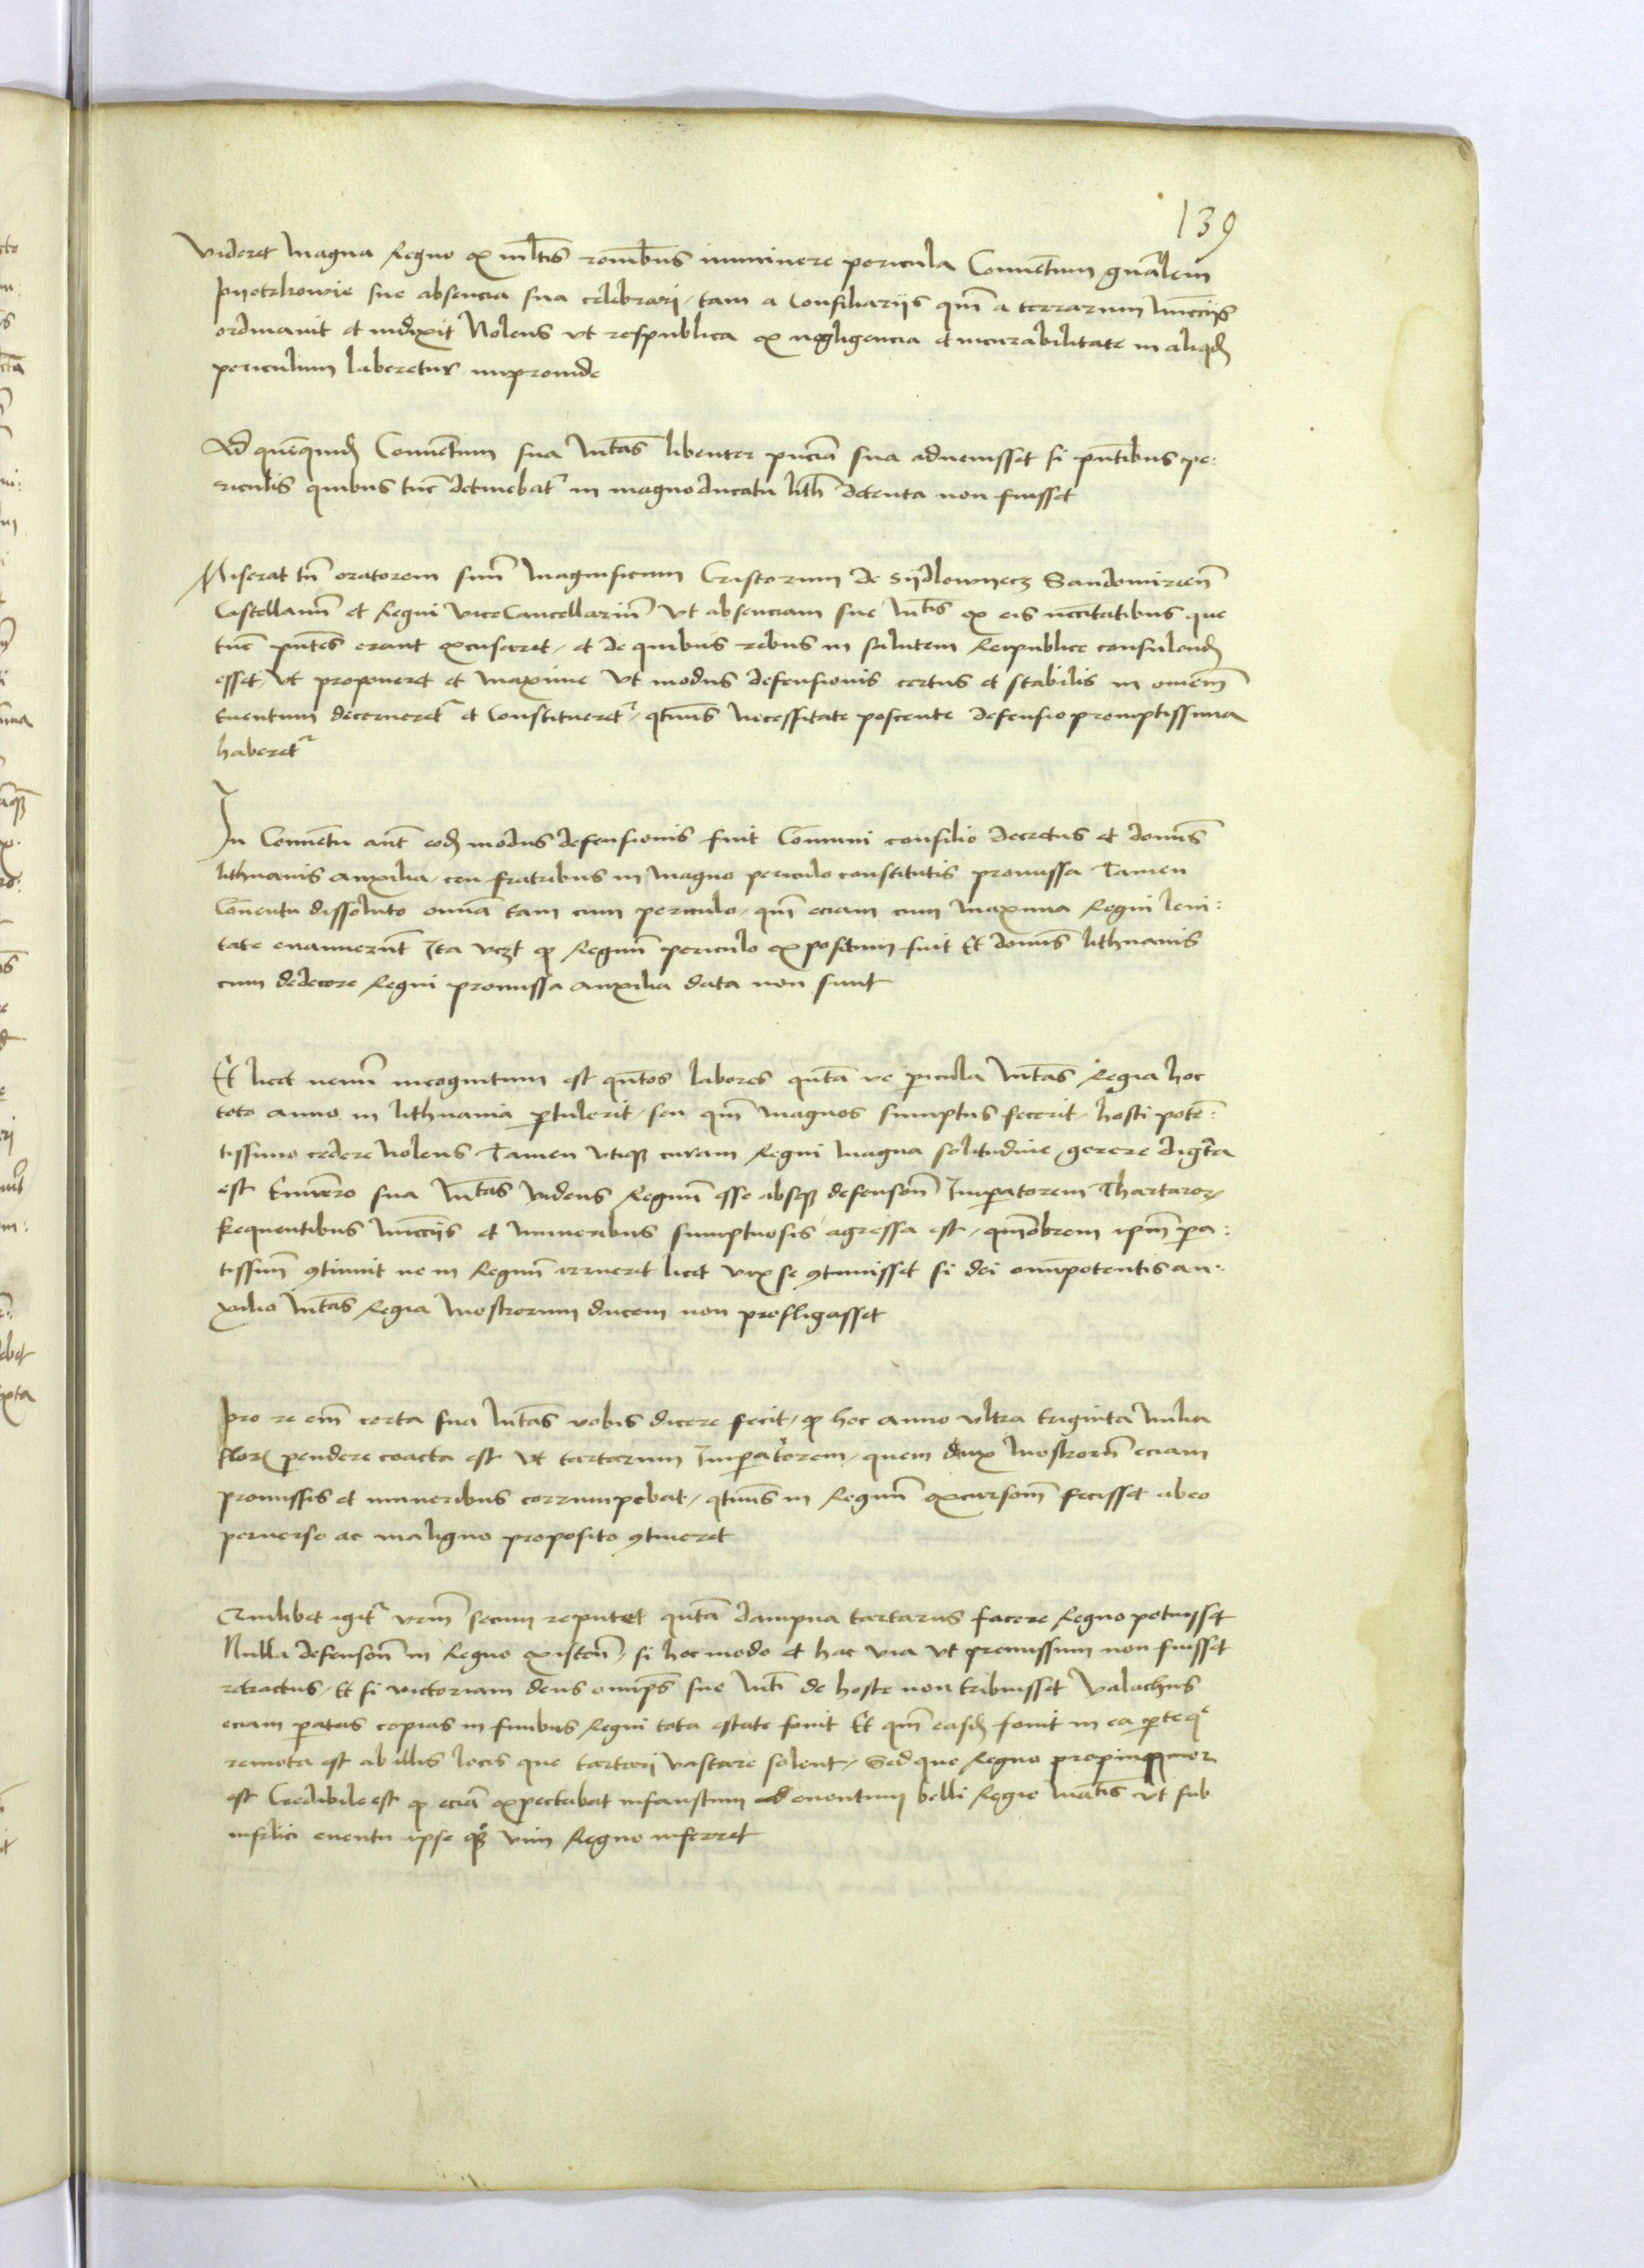 139
Videret magna Regno ex mltis romibus imminere pericula Conuentum gnalem
pyotrkowie sue absencia sua celebrari, tam a Consiliariis qm a terrarum Nuncciis
ordinauit et indixit Nolens vt respublica ex negligencia et incurabilitate in aliqd
periculum laberetur improuide
Ad quequid Conuentum sua Mtas libenter pncia sua aduenisset si pntibus pe:
riculis quibus tuc detinebatr in magnoducatu lith detenta non fuisset
Miserat tn oratorem suu magnificum Cristorum de Syydlowyecz Sandomirien
Castellanu et Regni ViceCancellariu Vt absenciam sue Mtis ex eis nccitatibus que
tuc pntes erant excuseret, et de quibus rebus in salutem Reipublice consulend
esset, vt proponeret et maxime vt modus defensionis certus et stabilis in omem
Euentum decerneretr et Constitueretr, qtinus necessitate poscente defensio promptissima
haberetr
In Conuetu aut eod modus defensionis fuit Comuni consilio decretus et donis
lithuanis auxilia, ceu fratribus in magno periculo constitutis promissa Tamen
Conentu dissoluto omia tam cum periculo, qm eciam cum maxima Regni leui:
tate euanuerut Ita vczt qp Regnu periculo expositum fuit Et donis lithuanis
cum dedecore Regni promissa auxilia data non sunt
Et licet nemi incognitum est qntos labores qnta ve pericula Mtas Regia hoc
toto anno in lithuania ptulerit, seu qm magnos sumptus fecerit, hosti pote:
tissimo cedere Nolens, Tamen vtique curam Regni magna solitudine gerere digta
est Enimuero sua Mtas videns Regnu esse absque defensone Imperatorem Thartaror
frequentibus Nuncciis et muneribus sumptuosis agressa est, qmobrem ipm pa:
tissim ctinuit ne in Regnu irrueret licet vix se ctinuisset si dei omnipotentis au:
xilio Mtas Regia Moskorum ducem non profligasset
Pro re em certa sua Mtas vobis dicere fecit, qp hoc anno vltra triginta milia
flor pendere coacta est Vt tartarum Imperatorem, quem dux Moskoru eciam
promissis et muneribus corrumpebat, qtinus in Regnu excursom fecisset abeo
peruerso ac maligno proposito ctineret
Quilibet igitr vrm secum reputet qnta dampna tartarus facere Regno potuisset
Nulla defensone in Regno existen, si hoc modo et hac via vt premissum non fuisset
retractus, Et si victoriam deus omnips sue Mti de hoste non tribuisset Valachus
eciam patas copias in finibus Regni tota estate fouit Et qm easd fouit in ea parte que
remota est ab illis locis que tartari vastare solent, Sed que Regno propinquior
est Credibile est qp ecia expectabat infaustum euentum belli Regie Matis vt sub
infelici euentu ipse quoque vim Regno inferret